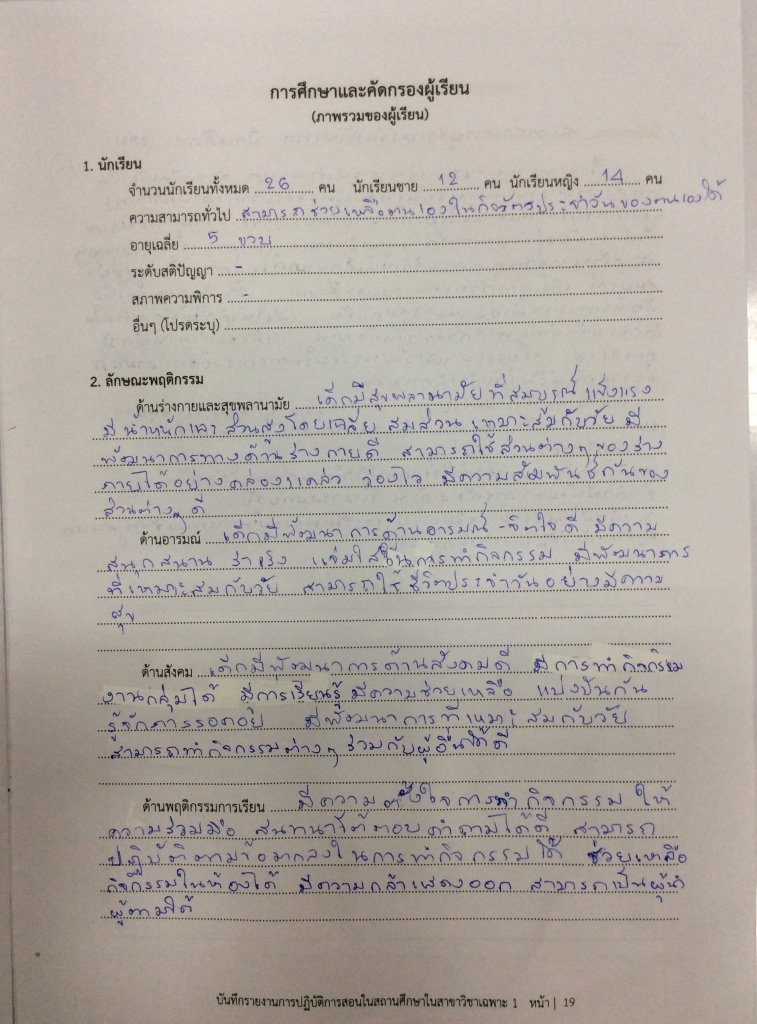 การศึกษาและคัดกรองผู้เรียน
(ภาพรวมของผู้เรียน)
1. นักเรียน
จำนวนนักเรียนทั้งหมด 26 คน นักเรียนชาย 12 คน นักเรียนหญิง 14 คน
ความสามารถทั่วไป สามารถช่วยเหลือตนเองในกิจวัตรประจำวันของตนเองได้
อายุเฉลี่ย 5 ขวบ
ระดับสติปัญญา -
สภาพความพิการ -
อื่นๆ (โปรดระบุ)
2. ลักษณะพฤติกรรม
ด้านร่างกายและสุขพลานามัย เด็กมีสุขพลานามัยที่สมบูรณ์ แข็งแรง
มีน้ำหนักและส่วนสูงโดยเฉลี่ย สมส่วน เหมาะสมกับวัย มี
พัฒนาการทางด้านร่างกายดี สามารถใช้ส่วนต่างๆ ของร่าง
กายได้อย่างคล่องแคล่ว ว่องไว มีความสัมพันธ์กันของ
ส่วนต่างๆ ดี
ด้านอารมณ์ เด็กมีพัฒนาการด้านอารมณ์ - จิตใจดี มีความ
สนุกสนาน ร่าเริง แจ่มใสในการทำกิจกรรม มีพัฒนาการ
ที่เหมาะสมกับวัย สามารถใช้ชีวิตประจำวันอย่างมีความ
สุข
ด้านสังคม เด็กมีพัฒนาการด้านสังคมดี มีการทำกิจกรรม
งานกลุ่มได้ มีการเรียนรู้ มีความช่วยเหลือ แบ่งปันกัน
รู้จักการรอคอย มีพัฒนาการที่เหมาะสมกับวัย
สามารถทำกิจกรรมต่างๆ ร่วมกับผู้อื่นได้ดี
ด้านพฤติกรรมการเรียน มีความตั้งใจการทำกิจกรรม ให้
ความร่วมมือ สนทนาโต้ตอบคำถามได้ดี สามารถ
ปฏิบัติตามข้อตกลงในการทำกิจกรรมได้ ช่วยเหลือ
กิจกรรมในห้องได้ มีความกล้าแสดงออก สามารถเป็นผู้นำ
ผู้ตามได้
บันทึกรายงานการปฏิบัติการสอนในสถานศึกษาในสาขาวิชาเฉพาะ 1 หน้า | 19